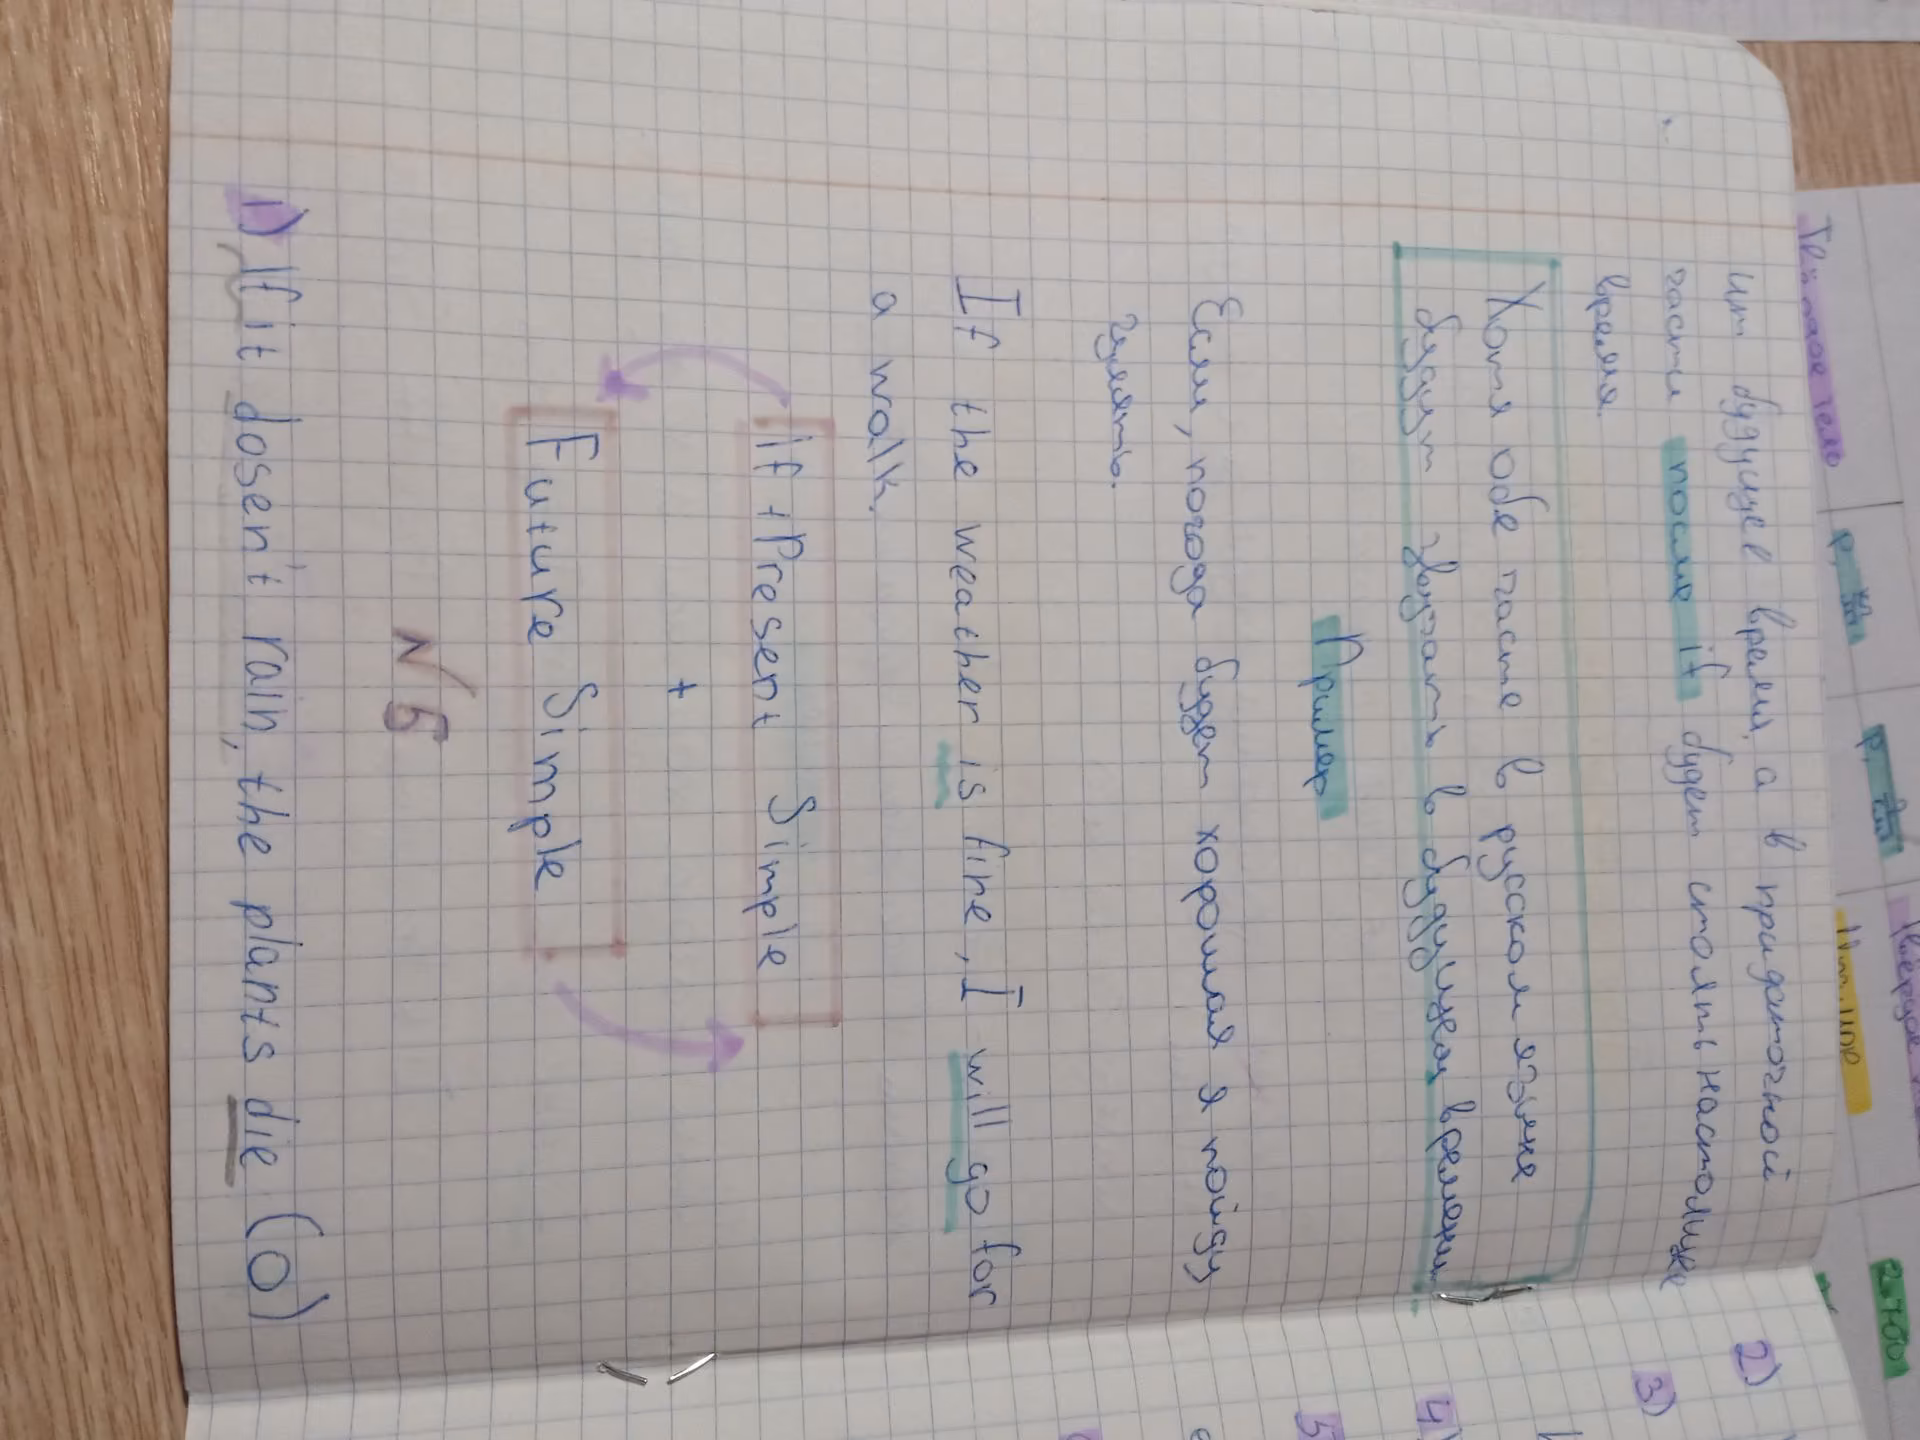 ит будущее время, а в придаточной
части после if будет стоять настоящее
время.
Хотя обе части в русском языке
будут звучать в будущем времени
Пример
Если, погода будет хорошая я пойду
гулять.
If the weather is fine, I will go for
a walk.
If + Present Simple
+
Future Simple
№5
1) If it dosen't rain, the plants die (0)
2)
3)
4)
5